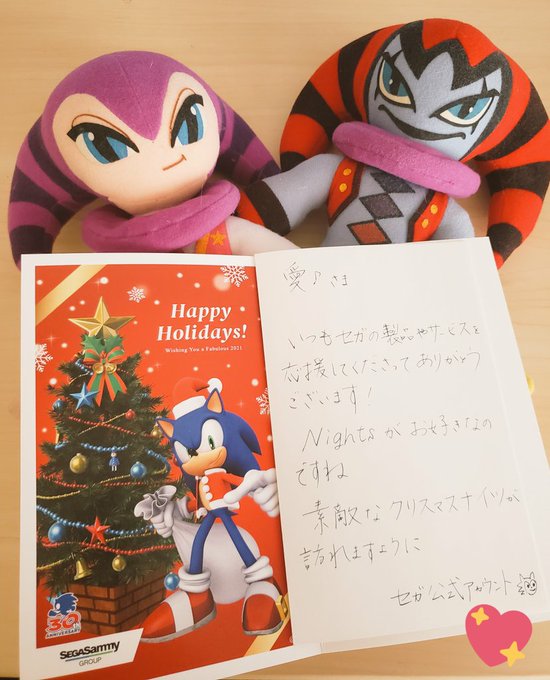 Happy
Holidays!
Wishing You a Fabulous 2021
30th
ANNIVERSARY
SEGASammy
GROUP
愛♪さま
いつもセガの製品やサービスを
応援してくださってありがとう
ございます！
Nightsがお好きなの
ですね
素敵なクリスマスナイツが
訪れますように
セガ公式アカウント